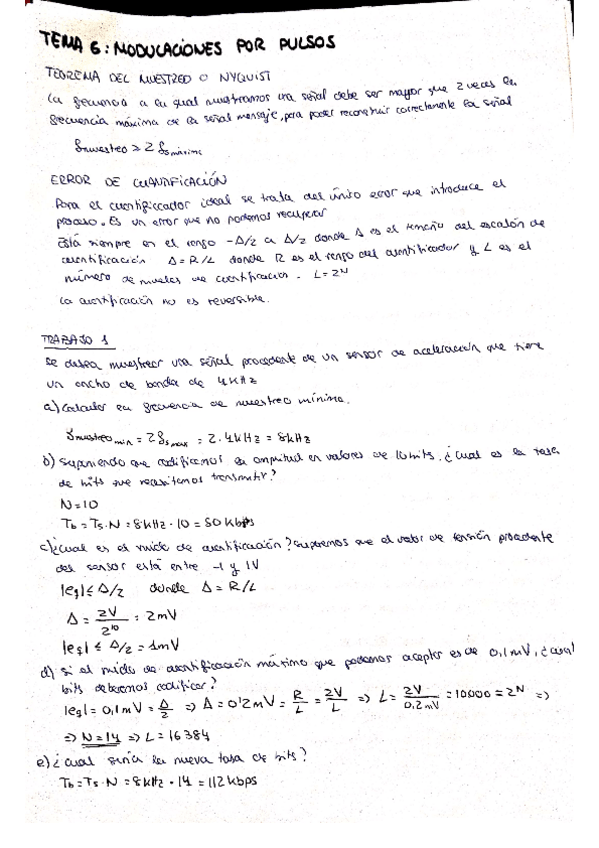 TEMA 6: MODULACIONES POR PULSOS
TEOREMA DEL MUESTREO O NYQUIST
La frecuencia a la cual muestreamos una señal debe ser mayor que 2 veces la
frecuencia máxima de la señal mensaje, para poder reconstruir correctamente la señal
fmuestreo > 2 fs máxima
ERROR DE CUANTIFICACIÓN
Para el cuantificador ideal se trata del único error que introduce el
proceso. Es un error que no podemos recuperar
Está siempre en el rango -Δ/2 a Δ/2 donde Δ es el tamaño del escalón de
cuantificación Δ=R/L donde R es el rango del cuantificador y L es el
número de niveles de cuantificación. L=2^N
La cuantificación no es reversible.
TRABAJO 1
Se desea muestrear una señal procedente de un sensor de aceleración que tiene
un ancho de banda de 4kHz
a) Calcular la frecuencia de muestreo mínima.
fmuestreo min = 2 fs max = 2·4kHz = 8kHz
b) Suponiendo que codificamos la amplitud en valores de 10 bits. ¿Cual es la tasa
de bits que necesitamos transmitir?
N=10
Tb = Ts·N = 8kHz·10 = 80 kbps
c) ¿Cual es el ruido de cuantificación? Suponemos que el valor de tensión procedente
del sensor está entre -1 y 1V
|eq| ≤ Δ/2 donde Δ = R/L
Δ = 2V/2^10 = 2mV
|eq| ≤ Δ/2 = 1mV
d) Si el ruido de cuantificación máximo que podemos aceptar es de 0,1mV, ¿cual
bits debemos codificar?
|eq| = 0,1mV = Δ/2 ⇒ Δ = 0'2mV = R/L = 2V/L ⇒ L = 2V/0,2mV = 10000 = 2^N ⇒
⇒ N=14 ⇒ L = 16384
e) ¿Cual sería la nueva tasa de bits?
Tb = Ts·N = 8kHz·14 = 112kbps